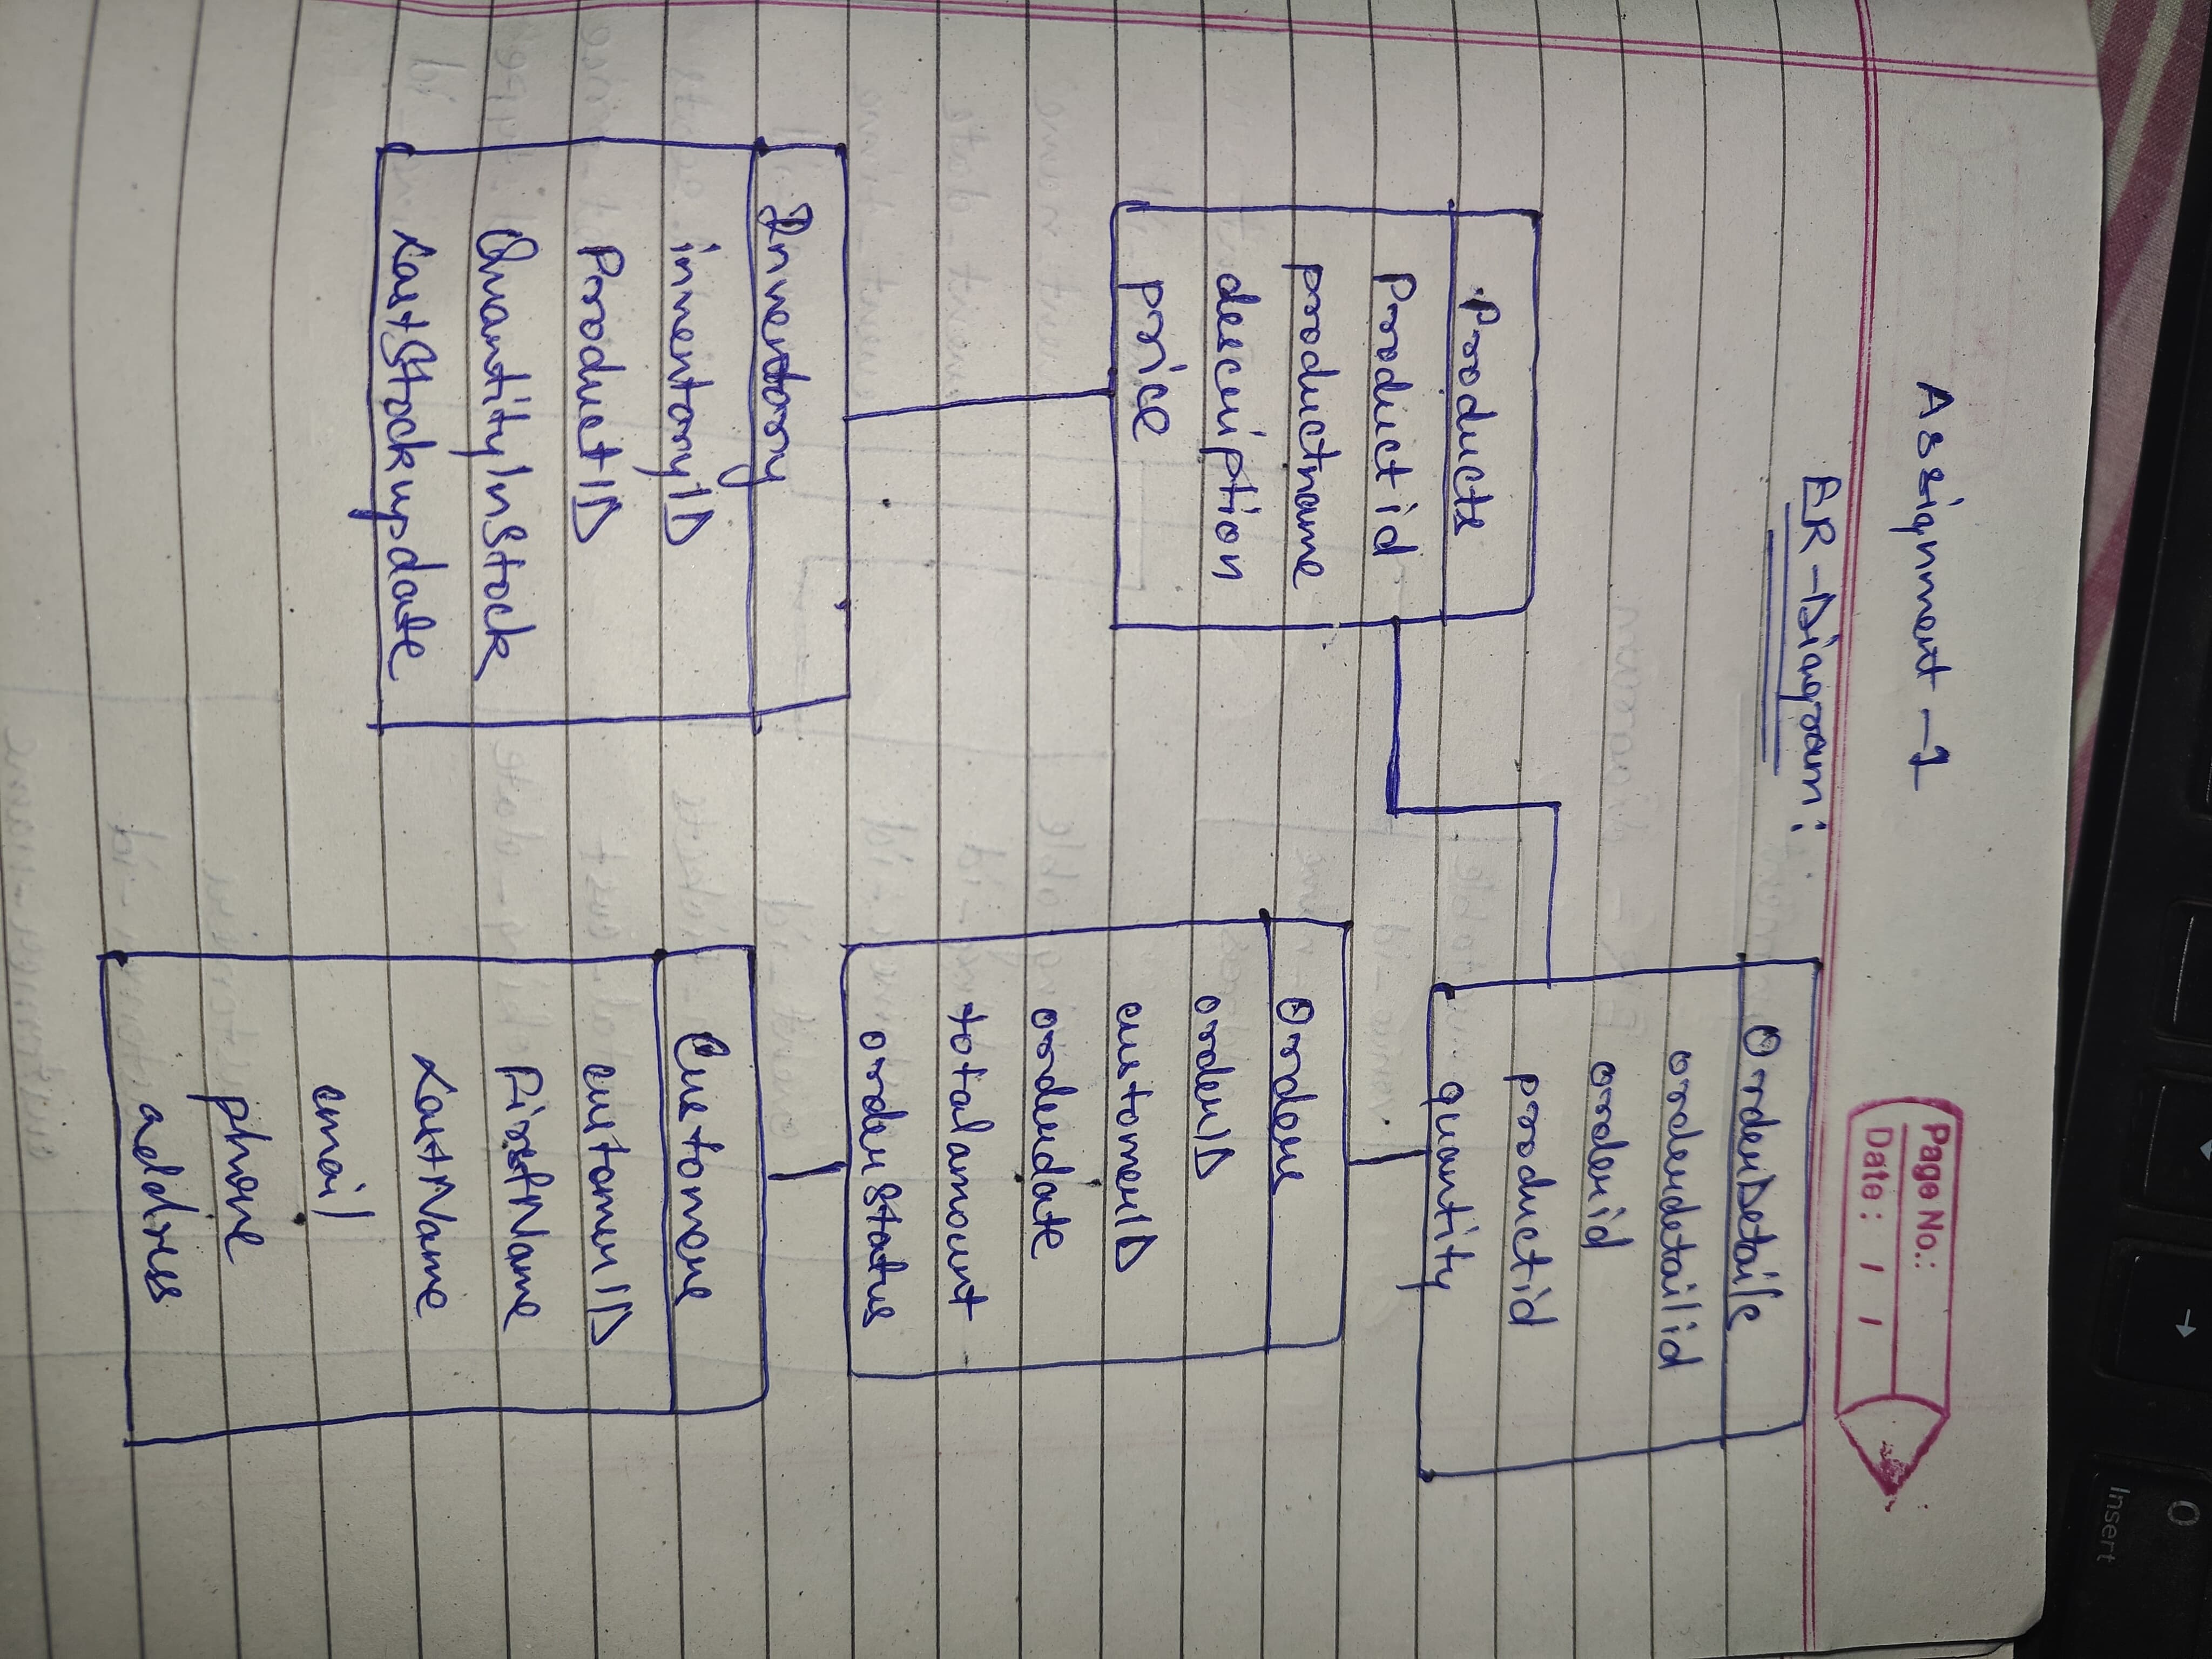 O
Insert
Assignment-1
Page No.:
Date: / /
ER-Diagram:
OrderDetails
orderdetailid
orderid
productid
quantity
Products
Productid
productname
description
price
Orders
orderID
customerID
orderdate
totalamount
orderstatus
Inventory
inventoryID
ProductID
QuantityInStock
LastStockupdate
Customers
customerID
FirstName
LastName
email
phone
address